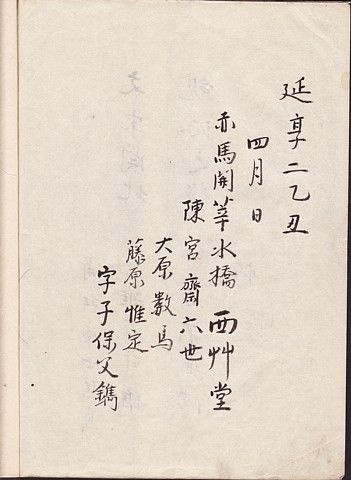 延享二乙丑
四月日
赤馬開莘水橋 西艸堂
陳宮齋六世
大原數馬
藤原惟定
字子保父鐫